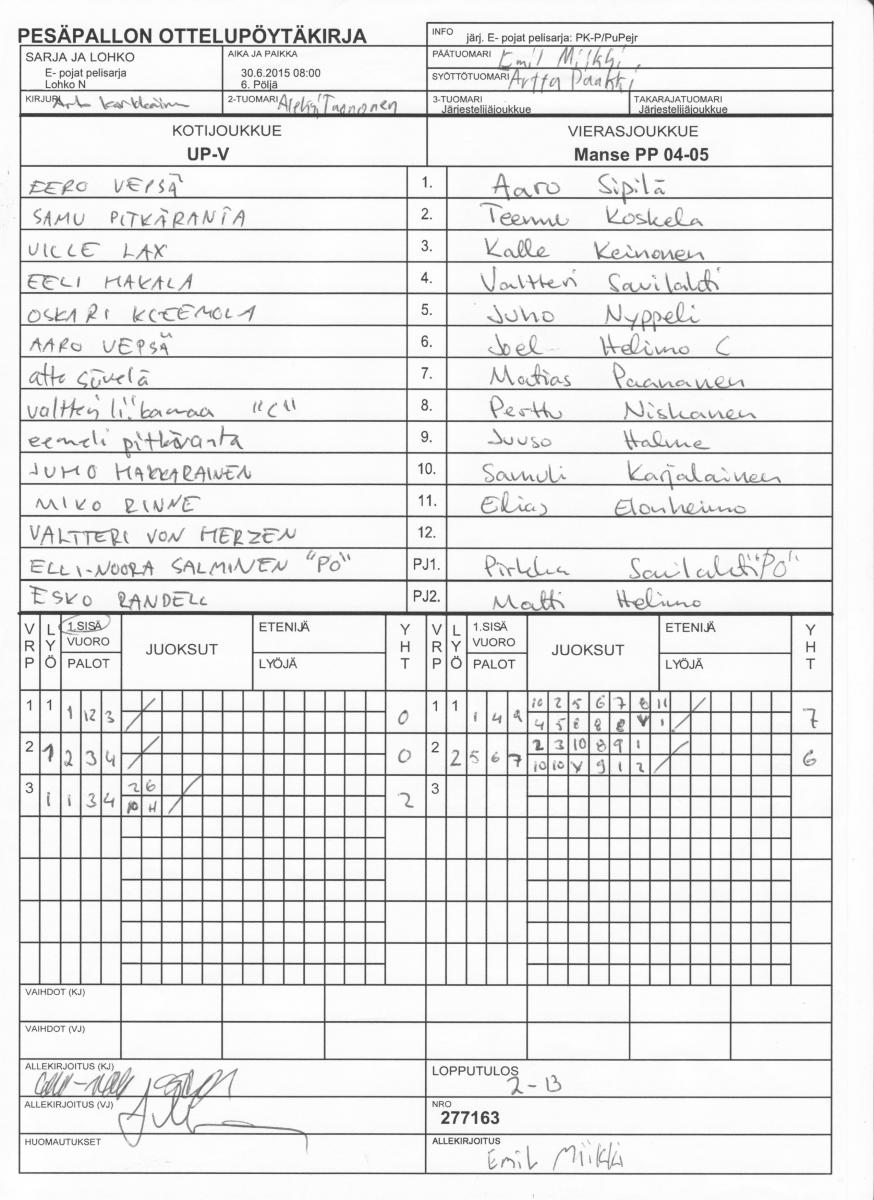 PESÄPALLON OTTELUPÖYTÄKIRJA
INFO järj. E- pojat pelisarja: PK-P/PuPejr
SARJA JA LOHKO
E- pojat pelisarja
Lohko N
AIKA JA PAIKKA
30.6.2015 08:00
6. Pöljä
PÄÄTUOMARI Emil Miikki
SYÖTTÖTUOMARI Arttu Paakki
KIRJURI
2-TUOMARI
3-TUOMARI
Järjestelijäjoukkue
TAKARAJATUOMARI
Järjestelijäjoukkue
KOTIJOUKKUE
UP-V
VIERASJOUKKUE
Manse PP 04-05
EERO VEPSÄ 1. Aaro Sipilä
SAMU PITKÄRANTA 2. Teemu Koskela
VILLE LAX 3. Kalle Keinonen
EELI MAKALA 4. Valtteri Savilahti
OSKARI KLEEMOLA 5. Juho Nyppeli
AARO VEPSÄ 6. Joel Helimo C
atte 7. Matias Paananen
valtteri "C" 8. Perttu Niskanen
eemeli pitkäranta 9. Juuso Halme
JUHO MAKKARAINEN 10. Samuli Karjalainen
MIKO RINNE 11. Elias Elonheimo
VALTTERI VON HERZEN 12.
ELLI-NOORA SALMINEN "PO" PJ1. Pirkka Savilahti "PO"
ESKO RANDELL PJ2. Matti Helimo
VRP LYÖ 1.SISÄ VUORO PALOT JUOKSUT ETENIJÄ LYÖJÄ YHT VRP LYÖ 1.SISÄ VUORO PALOT JUOKSUT ETENIJÄ LYÖJÄ YHT
1 1 1 12 3 / 0 1 1 1 4 9 10 2 5 6 7 8 11 / 7
4 5 8 8 8 V 1
2 1 2 3 4 / 0 2 2 5 6 7 2 3 10 8 9 1 / 6
10 10 V 9 1 2
3 1 1 3 4 2 6 / 2 3
10 H
VAIHDOT (KJ)
VAIHDOT (VJ)
ALLEKIRJOITUS (KJ)
LOPPUTULOS
2-13
ALLEKIRJOITUS (VJ)
NRO
277163
HUOMAUTUKSET
ALLEKIRJOITUS
Emil Miikki